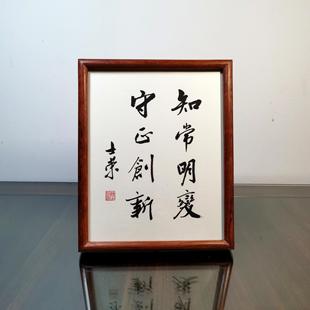 知常明變
守正創新
士榮